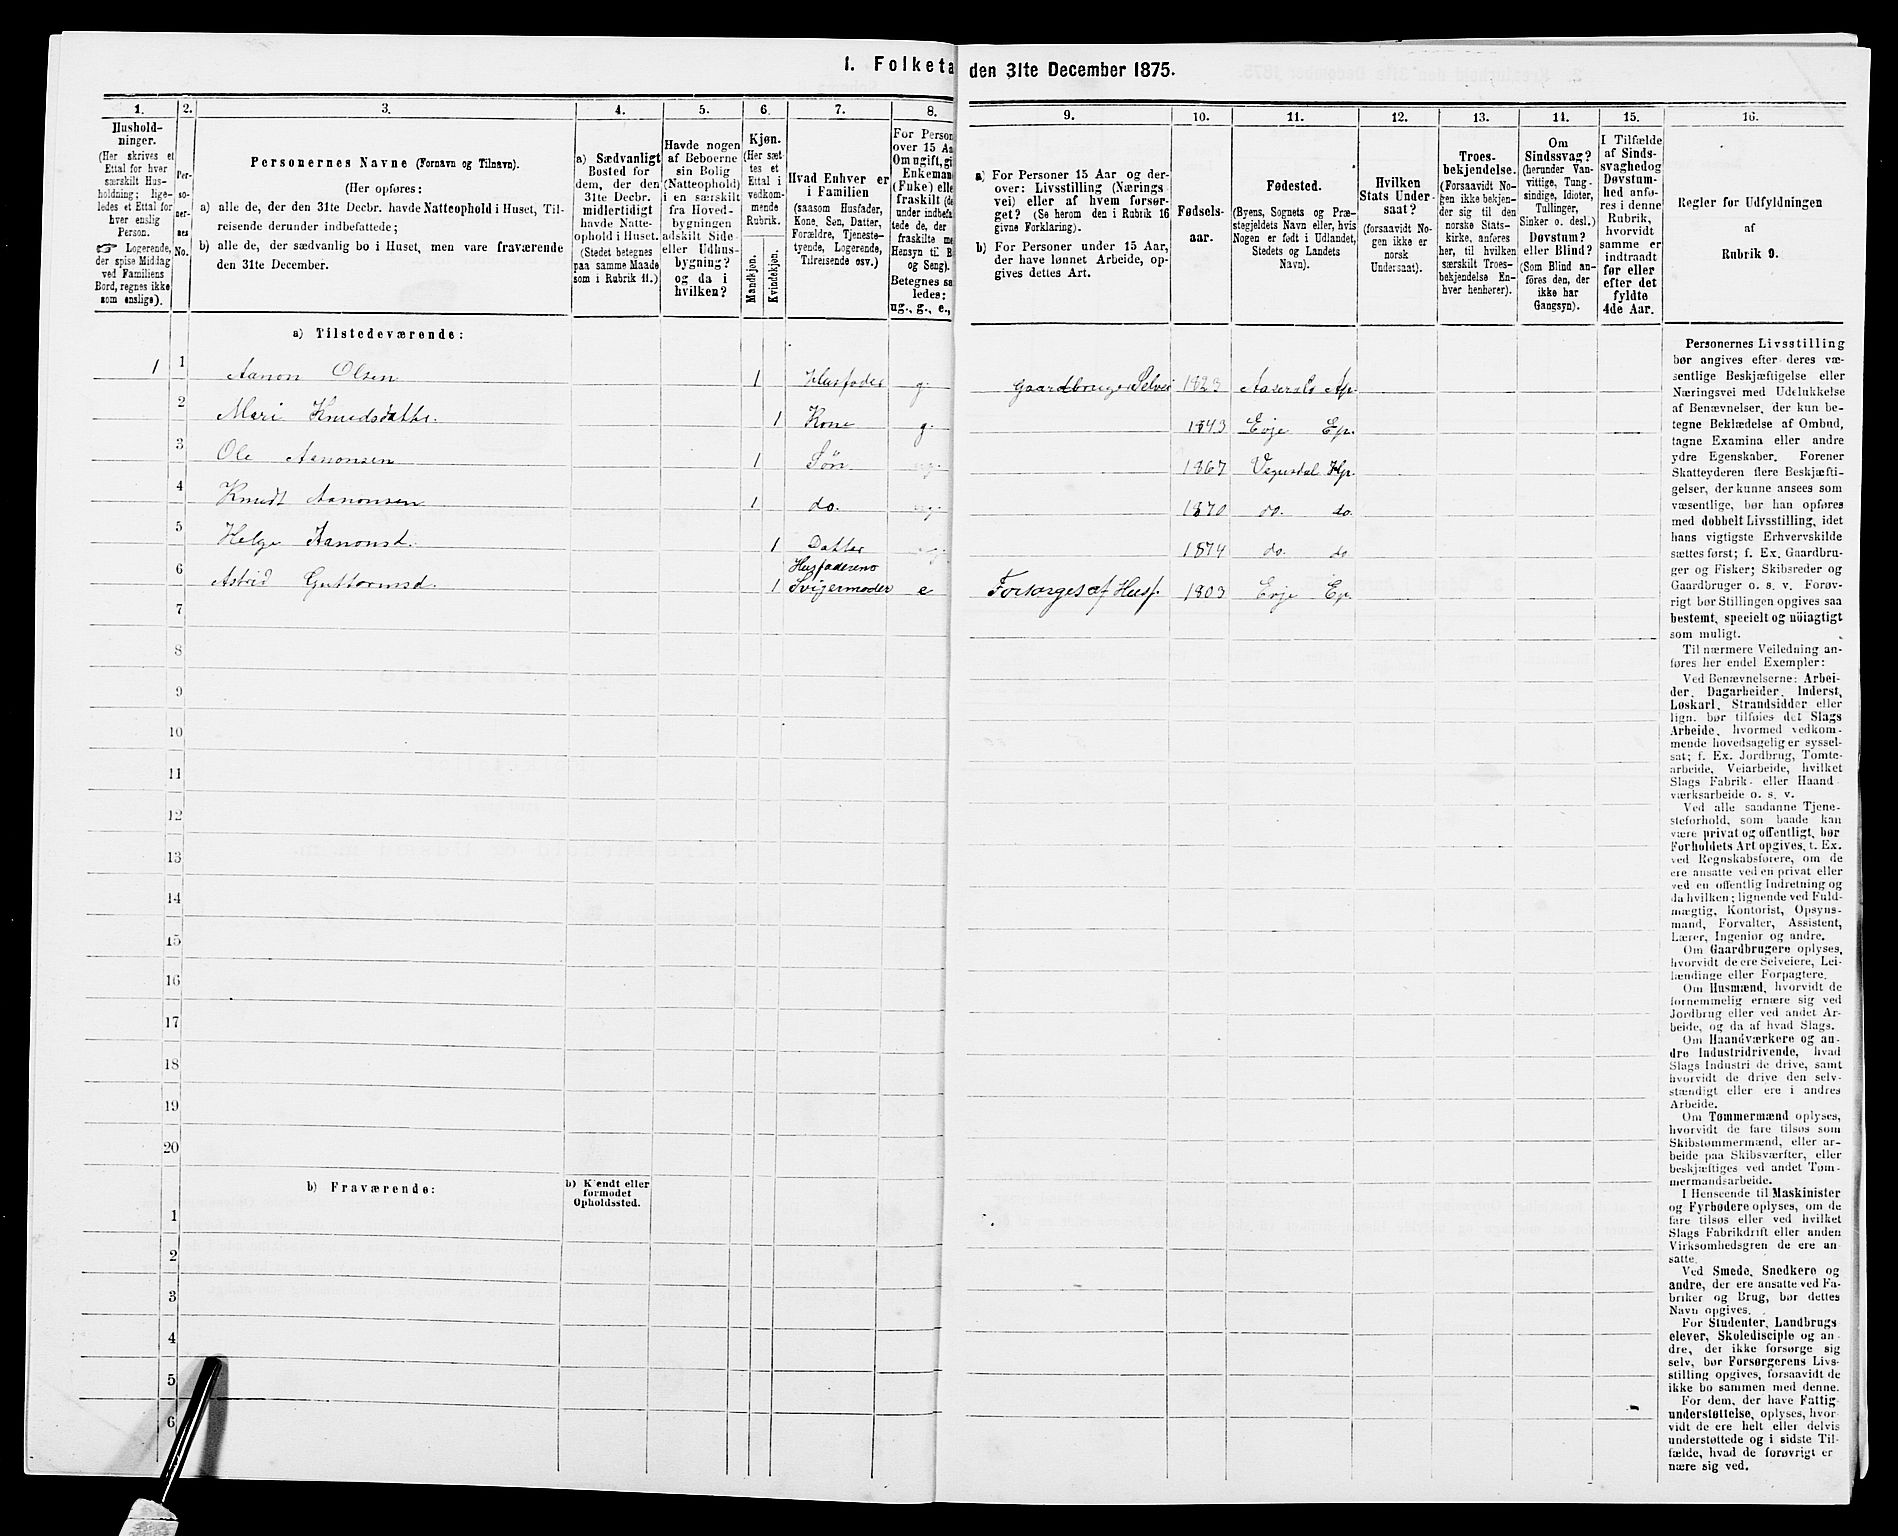 1. Folketa den 31te December 1875.
1. 2. 3. 4. 5. 6. 7. 8. 9. 10. 11. 12. 13. 14. 15. 16.
Hushold-
ninger.
(Her skrives et
Ettal for hver
særskilt Hus-
holdning; lige-
ledes et Ettal for
hver enslig
Person.
☞ Logerende,
der spise Middag
ved Familiens
Bord, regnes ikke
som enslige).
Per-
so-
ner-
nes
No.
Personernes Navne (Fornavn og Tilnavn).
(Her opføres:
a) alle de, der den 31te Decbr. havde Natteophold i Huset, Til-
reisende derunder indbefattede;
b) alle de, der sædvanlig bo i Huset, men vare fraværende
den 31te December.
a) Sædvanligt
Bosted for
dem, der den
31te Decbr.
midlertidigt
havde Natte-
ophold i Huset.
(Stedet betegnes
paa samme Maade
som i Rubrik 11.)
Havde nogen
af Beboerne
sin Bolig
(Natteophold)
i en særskilt
fra Hoved-
bygningen
adskilt Side-
eller Udhus-
bygning?
og da i
hvilken?
Kjøn.
(Her sæt-
tes et
Ettal i
vedkom-
mende
Rubrik.
Mandkjøn.
Kvindekjøn.
Hvad Enhver er
i Familien
(saasom Husfader,
Kone, Søn, Datter,
Forældre, Tjeneste-
tyende, Logerende,
Tilreisende osv.)
For Person
over 15 Aa
Om ugift, gi
Enkeman
(Fuke) elle
fraskilt (de
under indbefa
tede de, der
fraskilte me
Hensyn til B
og Seng).
Betegnes saa
ledes:
ug., g., e.,
a) For Personer 15 Aar og der-
over: Livsstilling (Nærings
vei) eller af hvem forsør-
get? (Se herom den i Rubrik 16
givne Forklaring).
b) For Personer under 15 Aar,
der have lønnet Arbeide, op-
gives dettes Art.
Fødsels-
aar.
Fødested.
(Byens, Sognets og Præ-
stegjeldets Navn eller, hvis
Nogen er født i Udlandet,
Stedets og Landets
Navn).
Hvilken
Stats Under-
saat?
(forsaavidt No-
gen ikke er
norsk
Undersaat).
Troes-
bekjendelse.
(Forsaavidt No-
gen ikke bekjen-
der sig til den
norske Stats-
kirke, anføres
her, til hvilken
særskilt Troes-
bekjendelse En-
hver henhører).
Om
Sindssvag?
(herunder Van-
vittige, Tung-
sindige, Idioter,
Tullinger,
Sinker o. desl.)
Døvstum?
eller Blind?
(Som Blind an-
føres den, der
ikke har
Gangsyn).
I Tilfælde
af Sinds-
svaghed og
Døvstum-
hed anfø-
res i denne
Rubrik,
hvorvidt
samme er
indtraadt
før eller
efter det
fyldte
4de Aar.
Regler for Udfyldningen
af
Rubrik 9.
a) Tilstedeværende:
1 1 Aanon Olsen 1 Husfader g. Gaardbruger Selvei 1823
2 Mari Knudsdatter 1 Kone g. 1843 Evje Ep.
3 Ole Aanonsen 1 Søn 1867 Vegusdal Hp.
4 Knudt Aanonsen 1 do. 1870 do. do.
5 Helge Aanonsd. 1 Datter 1874 do. do
6 Astrid Guttormsd. 1 Husfaderens Svigermoder e Forsørges af Husf. 1803 Evje Ep.
7
8
9
10
11
12
13
14
15
16
17
18
19
20
b) Fraværende:
b) Kjendt eller
formodet
Opholdssted.
1
2
3
4
5
6
Personernes Livsstilling
bør angives efter deres væ-
sentlige Beskjæftigelse eller
Næringsvei med Udelukkelse
af Benævnelser, der kun be-
tegne Beklædelse af Ombud,
tagne Examina eller andre
ydre Egenskaber. Forener
Skatteyderen flere Beskjæfti-
gelser, der kunne ansees som
væsentlige, bør han opføres
med dobbelt Livsstilling, idet
hans vigtigste Erhvervskilde
sættes først; f. Ex. Gaardbru-
ger og Fisker; Skibsreder og
Gaardbruger o. s. v. Forøv-
rigt bør Stillingen opgives saa
bestemt, specielt og nöiagtigt
som muligt.
Til nærmere Veiledning an-
føres her endel Exempler:
Ved Benævnelserne: Arbei-
der, Dagarbeider, Inderst,
Løskarl, Strandsidder eller
lign. bør tilføies det Slags
Arbeide, hvormed vedkom-
mende hovedsagelig er syssel-
sat; f. Ex. Jordbrug, Tomte-
arbeide, Veiarbeide, hvilket
Slags Fabrik- eller Haand-
værksarbeide o. s. v.
Ved alle saadanne Tjene-
steforhold, som baade kan
være privat og offentligt, bør
Forholdets Art opgives, t. Ex.
ved Regnskabsførere, om de
ere ansatte ved en privat eller
ved en offentlig Indretning og
da hvilken; lignende ved Fuld-
mægtig, Kontorist, Opsyns-
mand, Forvalter, Assistent,
Lærer, Ingeniør og andre.
Om Gaardbrugere oplyses,
hvorvidt de ere Selveiere, Lei-
lændinge eller Forpagtere.
Om Husmænd, hvorvidt de
fornemmelig ernære sig ved
Jordbrug eller ved andet Ar-
beide, og da af hvad Slags.
Om Haandværkere og an-
dre Industridrivende, hvad
Slags Industri de drive, samt
hvorvidt de drive den selv-
stændigt eller ere i andres
Arbeide.
Om Tømmermænd oplyses,
hvorvidt de fare tilsøs som
Skibstømmermænd, eller ar-
beide paa Skibsværfter, eller
beskjæftiges ved andet Tøm-
mermandsarbeide.
I Henseende til Maskinister
og Fyrbødere oplyses, om de
fare tilsøs eller ved hvilket
Slags Fabrikdrift eller anden
Virksomhedsgren de ere an-
satte.
Ved Smede, Snedkere og
andre, der ere ansatte ved Fa-
briker og Brug, bør dettes
Navn opgives.
For Studenter, Landbrugs
elever, Skoledisciple og an-
dre, der ikke forsørge sig
selv, bør Forsørgerens Livs-
stilling opgives, forsaavidt de
ikke bo sammen med denne.
For dem, der have Fattig-
understøttelse, oplyses, hvor-
vidt de ere helt eller delvis
understøttede og i sidste Til-
fælde, hvad de forøvrigt er-
nære sig ved.